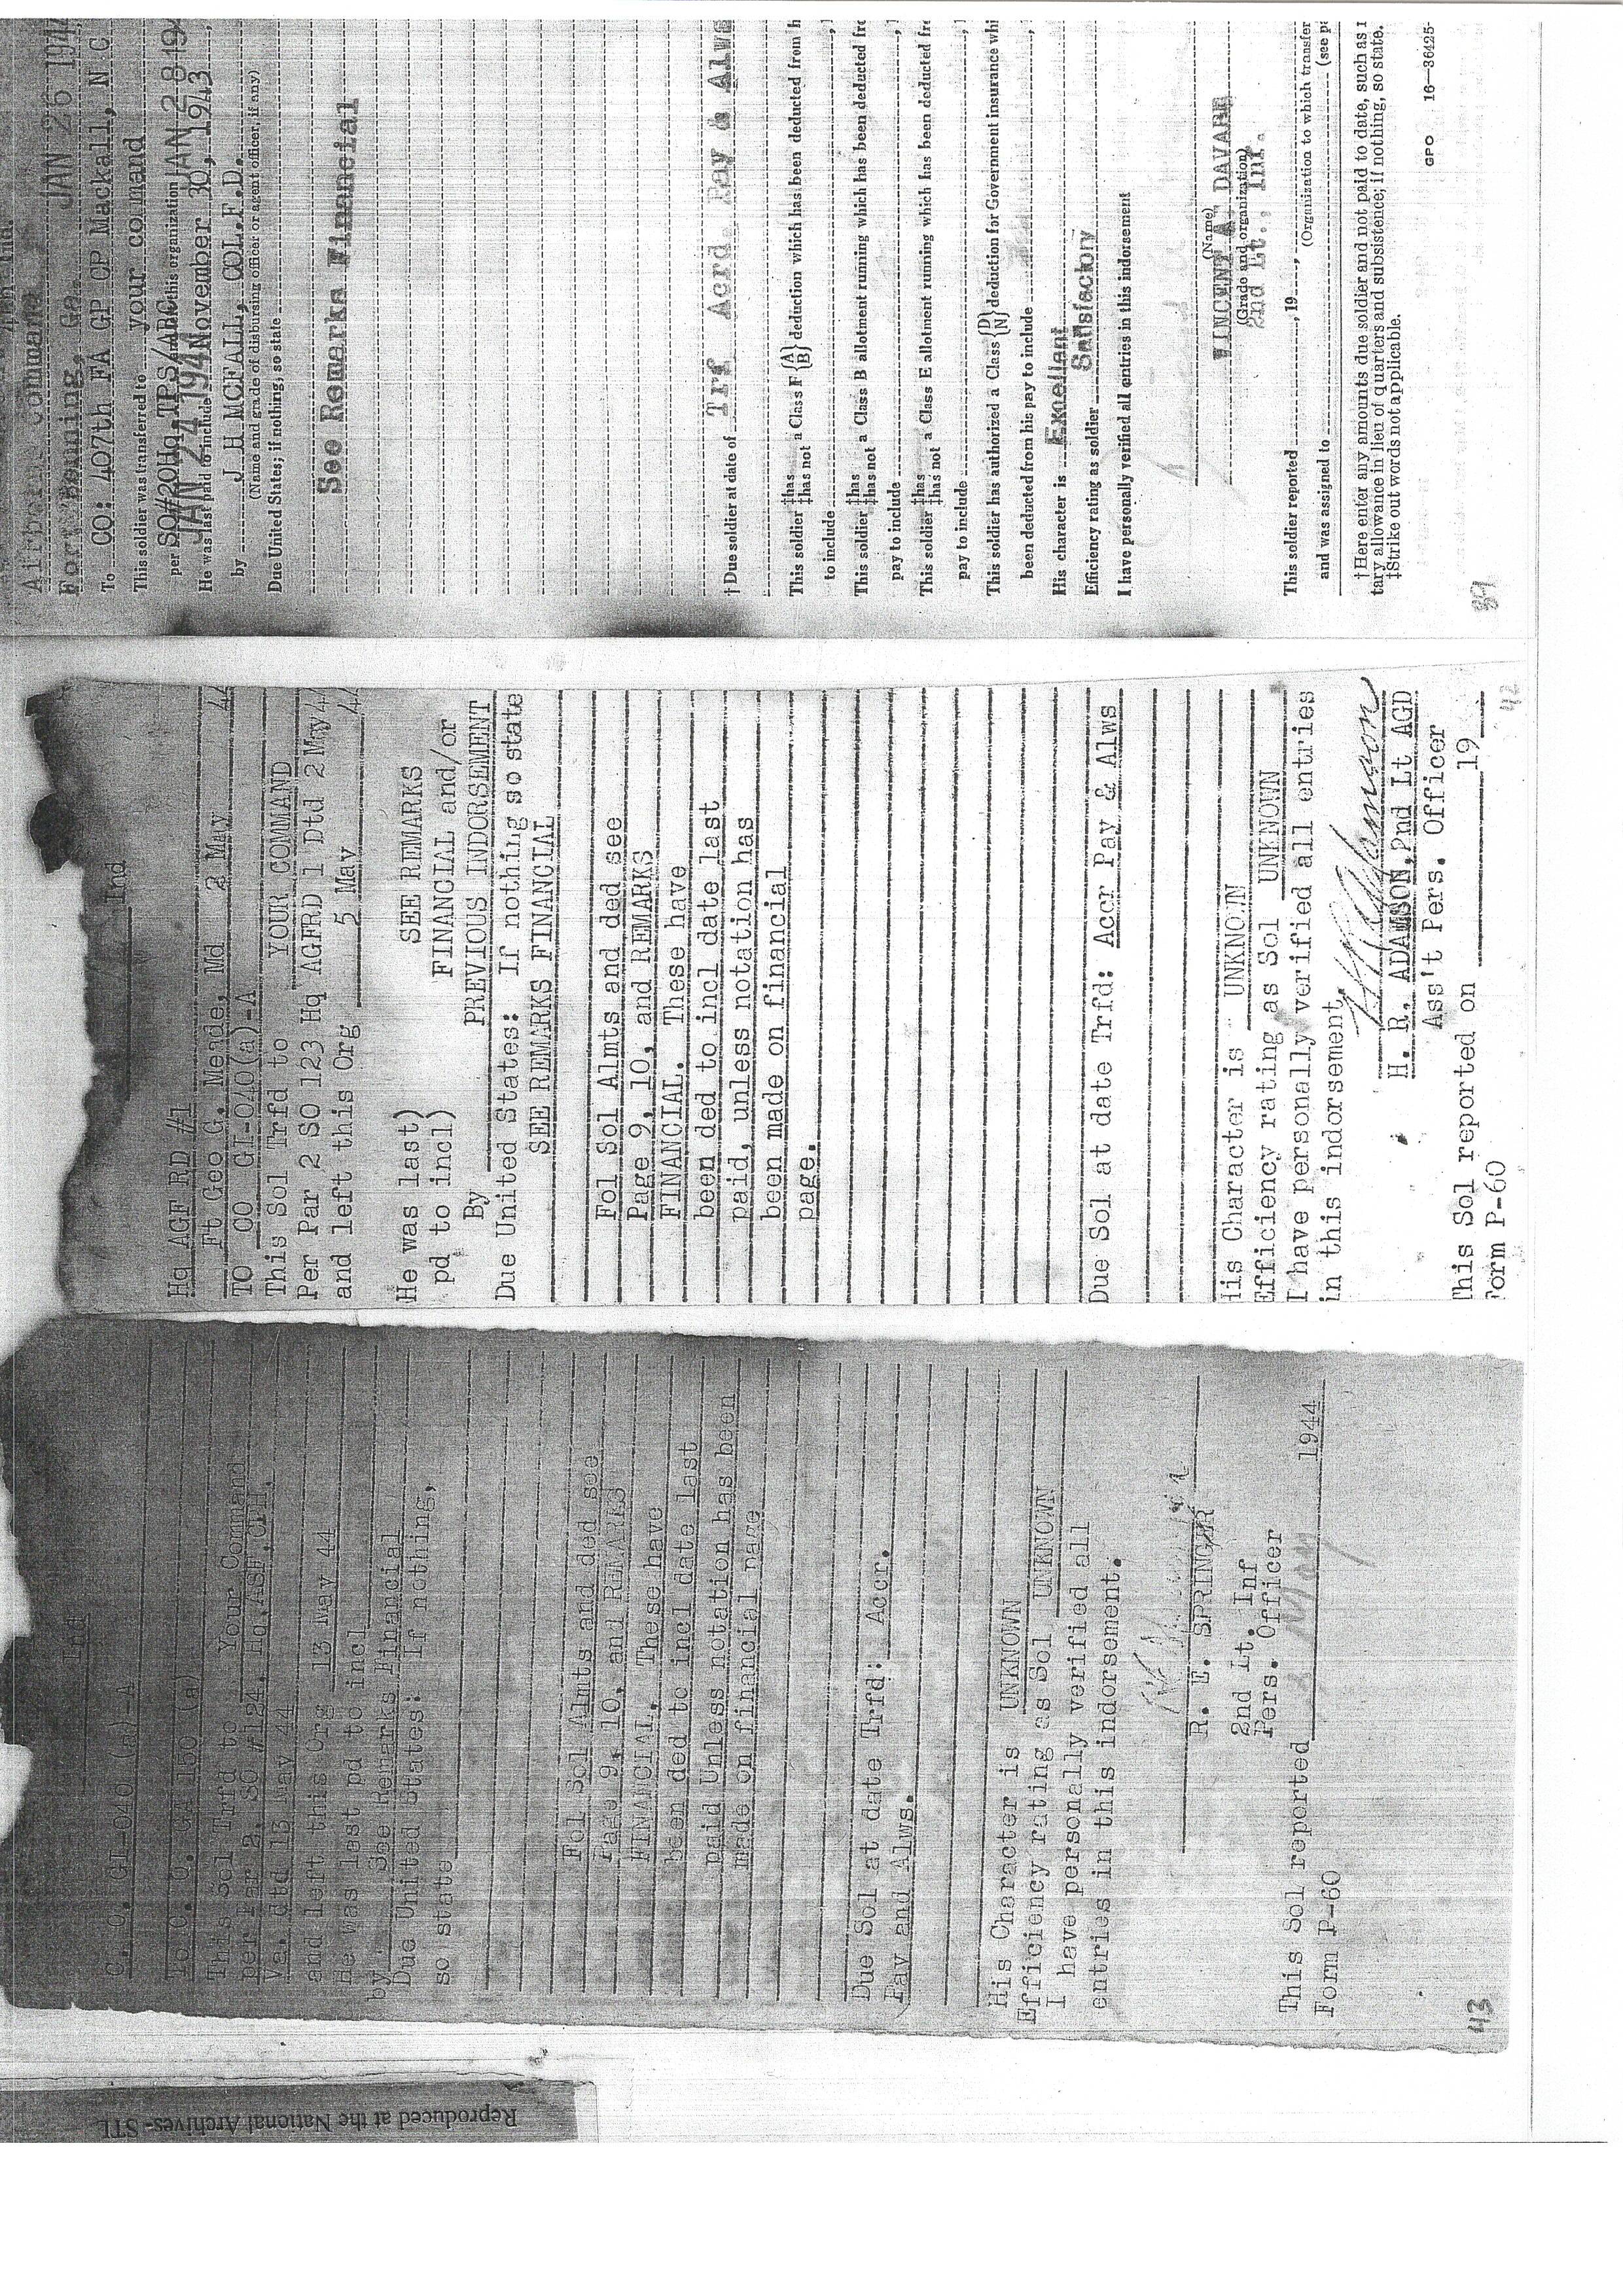 C. O. GI-040 (a)-A
To C. O. GA 150 (a)
This Sol Trfd to Your Command
per Par 2, SO #124, Hq,ASF,CPH,
Va. dtd 13 May 44
and left this Org 13 May 44
He was last pd to incl
by See Remarks Financial
Due United States: if nothing,
so state
Fol Sol Almts and ded see
Page 9, 10, and REMARKS
FINANCIAL. These have
been ded to incl date last
paid Unless notation has been
made on financial page
Due Sol at date Trfd: Accr.
Pay and Alws.
His Character is UNKNOWN
Efficiency rating as Sol UNKNOWN
I have personally verified all
entries in this indorsement.
R. E. SPRINGER
2nd Lt. Inf
Pers. Officer
This Sol reported May 1944
Form P-60
43
Ind
Hq AGF RD #1
Ft Geo G. Meade, Md 2 May 44
TO CO GI-040(a)-A
This Sol Trfd to YOUR COMMAND
Per Par 2 SO 123 Hq AGFRD 1 Dtd 2 May 44
and left this Org 5 May 44
He was last) SEE REMARKS
pd to incl) FINANCIAL and/or
By PREVIOUS INDORSEMENT
Due United States: If nothing so state
SEE REMARKS FINANCIAL
Fol Sol Almts and ded see
Page 9, 10, and REMARKS
FINANCIAL. These have
been ded to incl date last
paid, unless notation has
been made on financial
page.
Due Sol at date Trfd: Accr Pay & Alws
His Character is UNKNOWN
Efficiency rating as Sol UNKNOWN
I have personally verified all entries
in this indorsement.
H. R. ADAMSON, 2nd Lt AGD
Ass't Pers. Officer
This Sol reported on 19
Form P-60
42
Airborne Command
Fort Benning, Ga. JAN 26 194
To CO: 407th FA GP CP Mackall, N C
This soldier was transferred to your command
per SO#20Hq,TPS/ABC this organization JAN 28 19
JAN 24 1944
He was last paid to include November 30, 1943
by J H MCFALL, COL.F.D.
(Name and grade of disbursing officer or agent officer, if any)
Due United States; if nothing, so state
See Remarks Financial
†Due soldier at date of Trf Acrd Pay & Alws
This soldier ‡has ‡has not a Class F {A B} deduction which has been deducted from h
to include
This soldier ‡has ‡has not a Class B allotment running which has been deducted fr
pay to include
This soldier ‡has ‡has not a Class E allotment running which has been deducted fr
pay to include
This soldier has authorized a Class {D N} deduction for Government insurance whi
been deducted from his pay to include
His character is Exellent
Efficiency rating as soldier Satisfactory
I have personally verified all entries in this indorsement
(Name)
VINCENT A. DAVARE
(Grade and organization)
2nd Lt., Inf.
This soldier reported , 19
(Organization to which transfer
and was assigned to (see p
†Here enter any amounts due soldier and not paid to date, such as
tary allowance in lieu of quarters and subsistence; if nothing, so state.
‡Strike out words not applicable.
GPO 16—36425-
Reproduced at the National Archives- STL